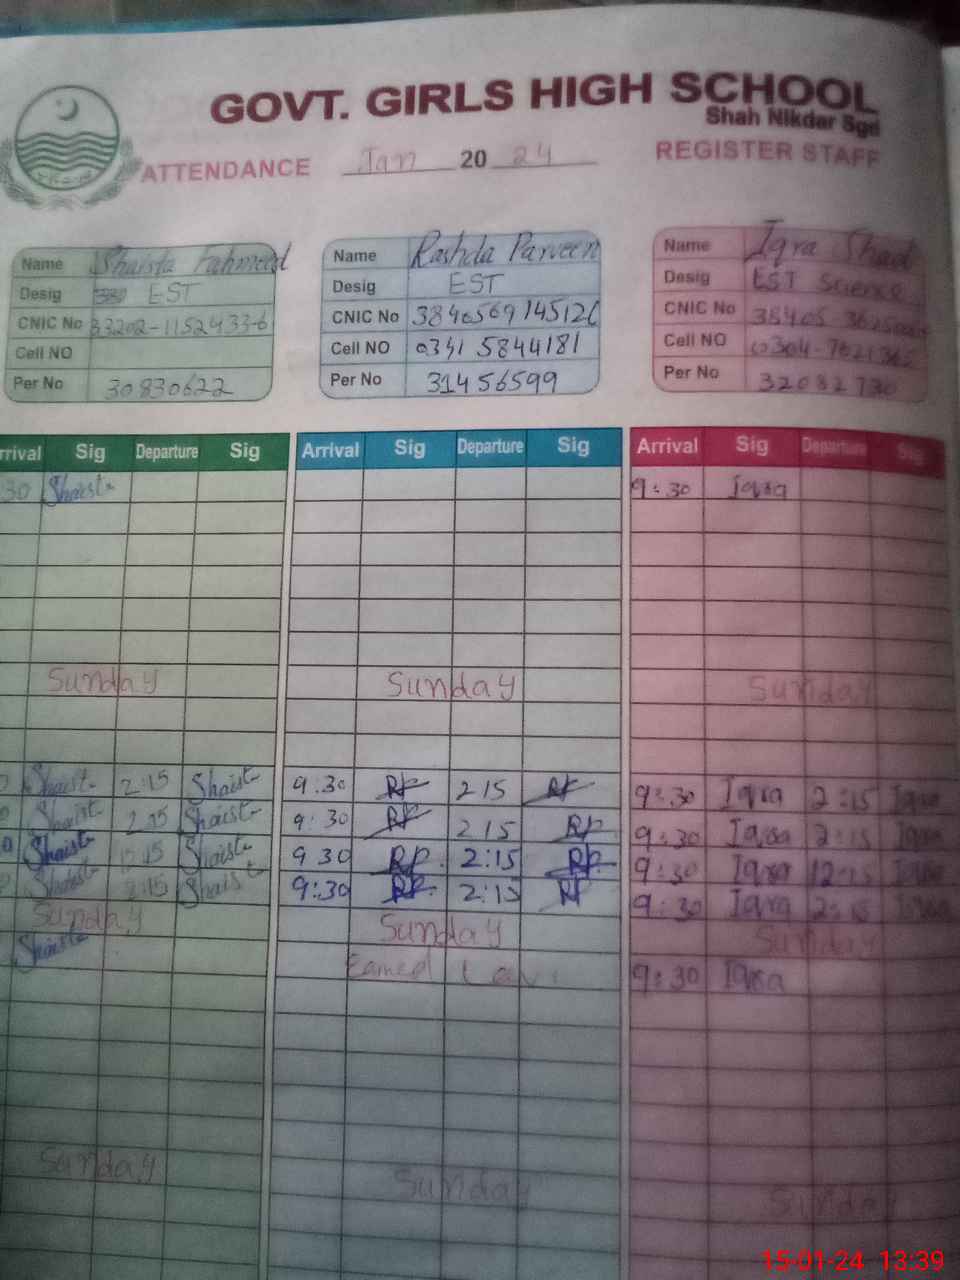 GOVT. GIRLS HIGH SCHOOL
Shah Nikdar Sgd
ATTENDANCE Jan 20 24 REGISTER STAFF
Name Shaista Fahmeed
Desig EST
CNIC No 33202-1152433-6
Cell NO
Per No 30830622
Name Rashda Parveen
Desig EST
CNIC No
Cell NO 0341 5844181
Per No 31456599
Name Iqra Shad
Desig EST Science
CNIC No 38405
Cell NO
Per No
rrival Sig Departure Sig Arrival Sig Departure Sig Arrival Sig Departure Sig
30 Shaista 9:30 Iqra
Sunday Sunday Sunday
Shaista 2:15 Shaista 9:30 RP 215 RP 9:30 Iqra 2:15 Iqra
Shaista 2:15 Shaista 9:30 RP 215 RP 9:30 Iqra 2:15 Iqra
Shaista 12:15 Shaista 9 30 RP 2:15 RP 9:30 Iqra 12:15 Iqra
Shaista 2:15 Shaista 9:30 RP 2:15 RP 9:30 Iqra 2:15 Iqra
Sunday Sunday Sunday
Shaista Earned 9:30 Iqra
Sunday Sunday Sunday
15-01-24 13:39